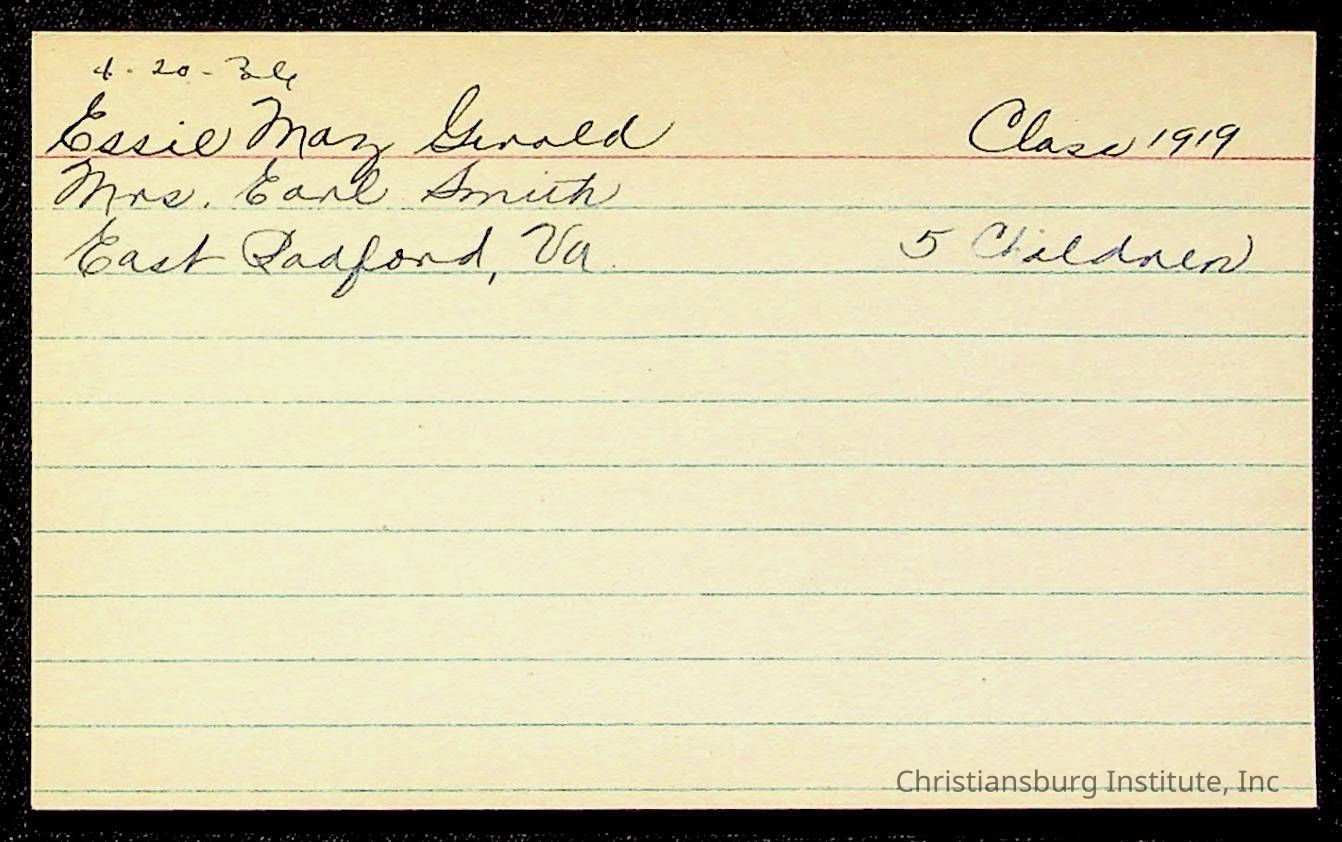 4-20-36
Essie May Gerald Class 1919
Mrs. Earl Smith
East Radford, Va. 5 Children
Christiansburg Institute, Inc